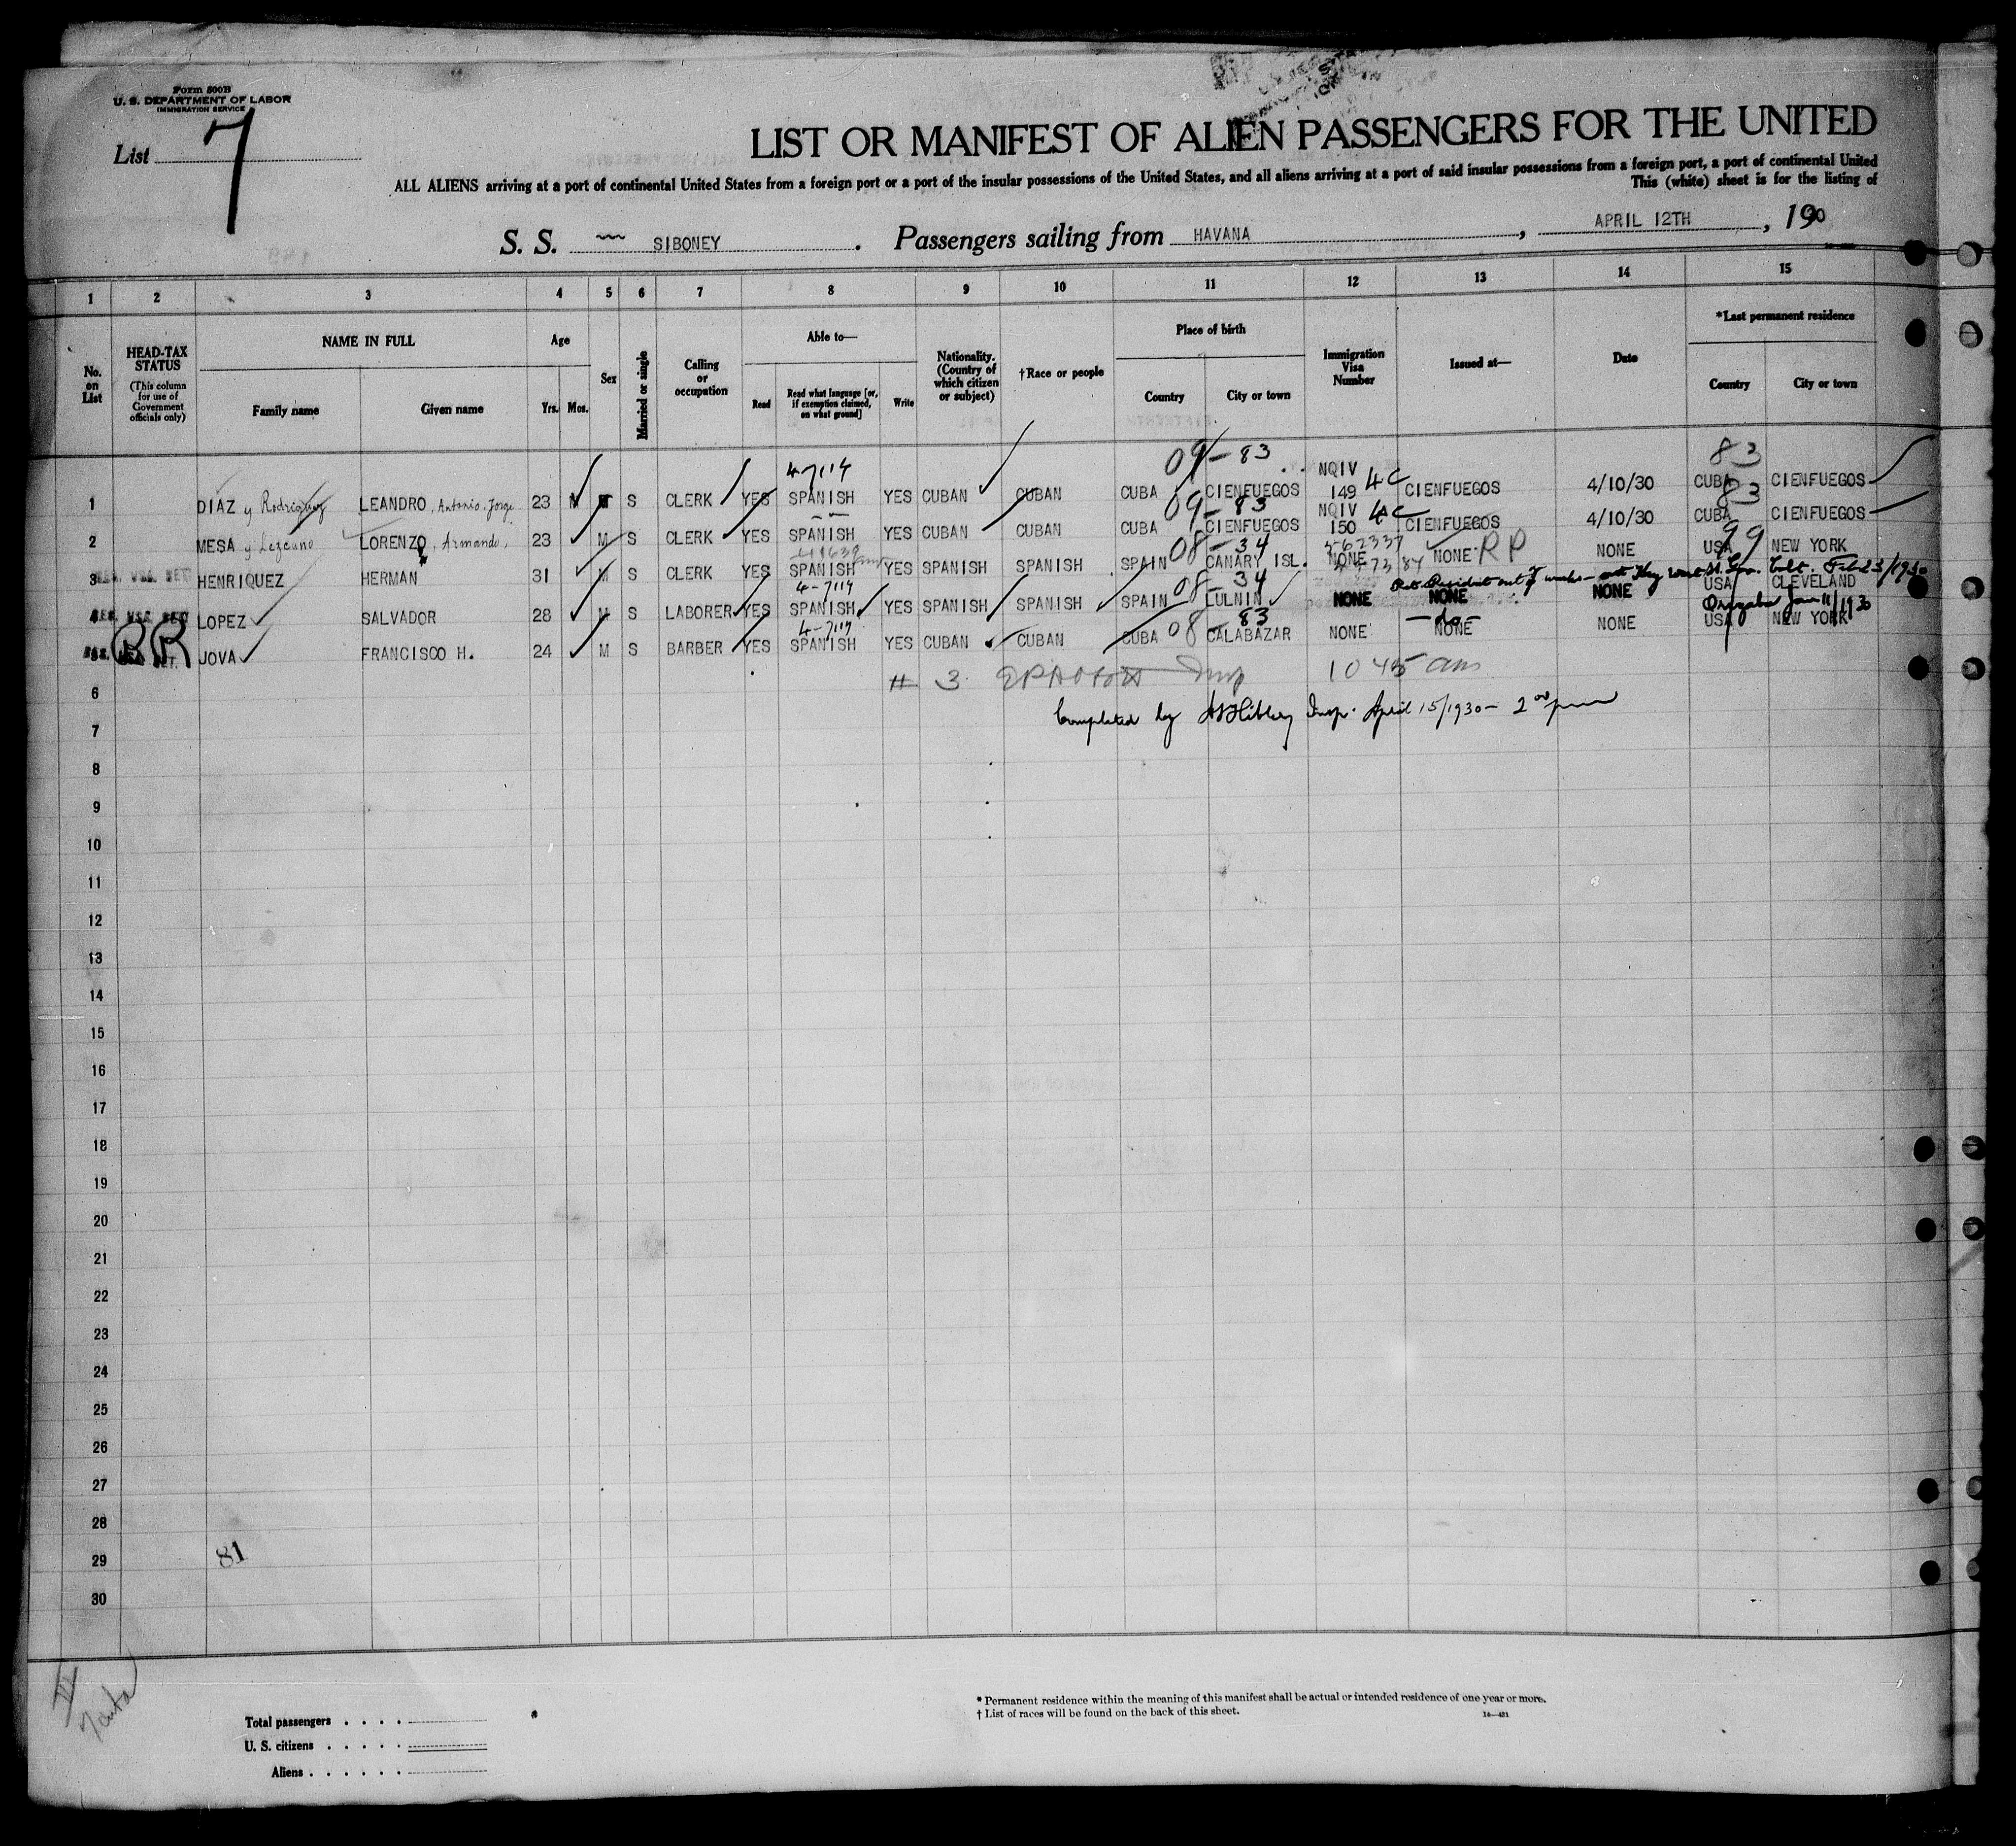 Form 500B
U. S. DEPARTMENT OF LABOR
IMMIGRATION SERVICE
List 7
LIST OR MANIFEST OF ALIEN PASSENGERS FOR THE UNITED
ALL ALIENS arriving at a port of continental United States from a foreign port or a port of the insular possessions of the United States, and all aliens arriving at a port of said insular possessions from a foreign port, a port of continental United
This (white) sheet is for the listing of
S. S. SIBONEY . Passengers sailing from HAVANA , APRIL 12TH , 1930
1 2 3 4 5 6 7 8 9 10 11 12 13 14 15
No. on List
HEAD-TAX STATUS (This column for use of Government officials only)
NAME IN FULL
Family name Given name
Age
Yrs. Mos.
Sex
Married or single
Calling or occupation
Able to—
Read Read what language [or, if exemption claimed, on what ground] Write
Nationality. (Country of which citizen or subject)
†Race or people
Place of birth
Country City or town
Immigration Visa Number
Issued at—
Date
*Last permanent residence
Country City or town
4-7114 09-83 NQIV 4C 83
1 DIAZ y Rodriguez LEANDRO, Antonio Jorge 23 M M S CLERK YES SPANISH YES CUBAN CUBAN CUBA CIENFUEGOS 149 CIENFUEGOS 4/10/30 CUBA CIENFUEGOS
09-83 NQIV 4C 83
2 MESA y Lezcano LORENZO, Armando, 23 M S CLERK YES SPANISH YES CUBAN CUBAN CUBA CIENFUEGOS 150 CIENFUEGOS 4/10/30 CUBA CIENFUEGOS
08-34 RP 99
3 HENRIQUEZ HERMAN 31 M S CLERK YES SPANISH YES SPANISH SPANISH SPAIN CANARY ISL. NONE NONE NONE USA NEW YORK
4-7114 08-34 Feb 23/1930
4 LOPEZ SALVADOR 28 M S LABORER YES SPANISH YES SPANISH SPANISH SPAIN LULNIN NONE NONE NONE USA CLEVELAND
4-7114 08-83 -do- Orizaba Jan 11/1930
BR
5 JOVA FRANCISCO H. 24 M S BARBER YES SPANISH YES CUBAN CUBAN CUBA CALABAZAR NONE NONE NONE USA NEW YORK
6 # 3 Insp 10 45 am
7 Completed by Insp. April 15/1930 - 2 00 pm
8
9
10
11
12
13
14
15
16
17
18
19
20
21
22
23
24
25
26
27
28
29 81
30
Total passengers
U. S. citizens
Aliens
* Permanent residence within the meaning of this manifest shall be actual or intended residence of one year or more.
† List of races will be found on the back of this sheet.
14—421